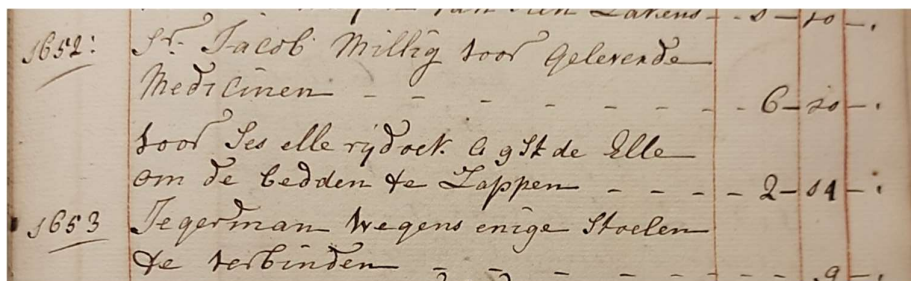 van den Lakens - - 8 - 10 - .
1652: Sr. Jacob Millig voor geleverde
Medicinen - - - - - - - - 6 - 10 - .
voor Ses elle rijdoek a 9 St de Elle
om de bedden te Lappen - - - - 2 - 14 - .
1653 Jegerman wegens enige Stoelen
te verbinden - - - - - - - - - 9 - .